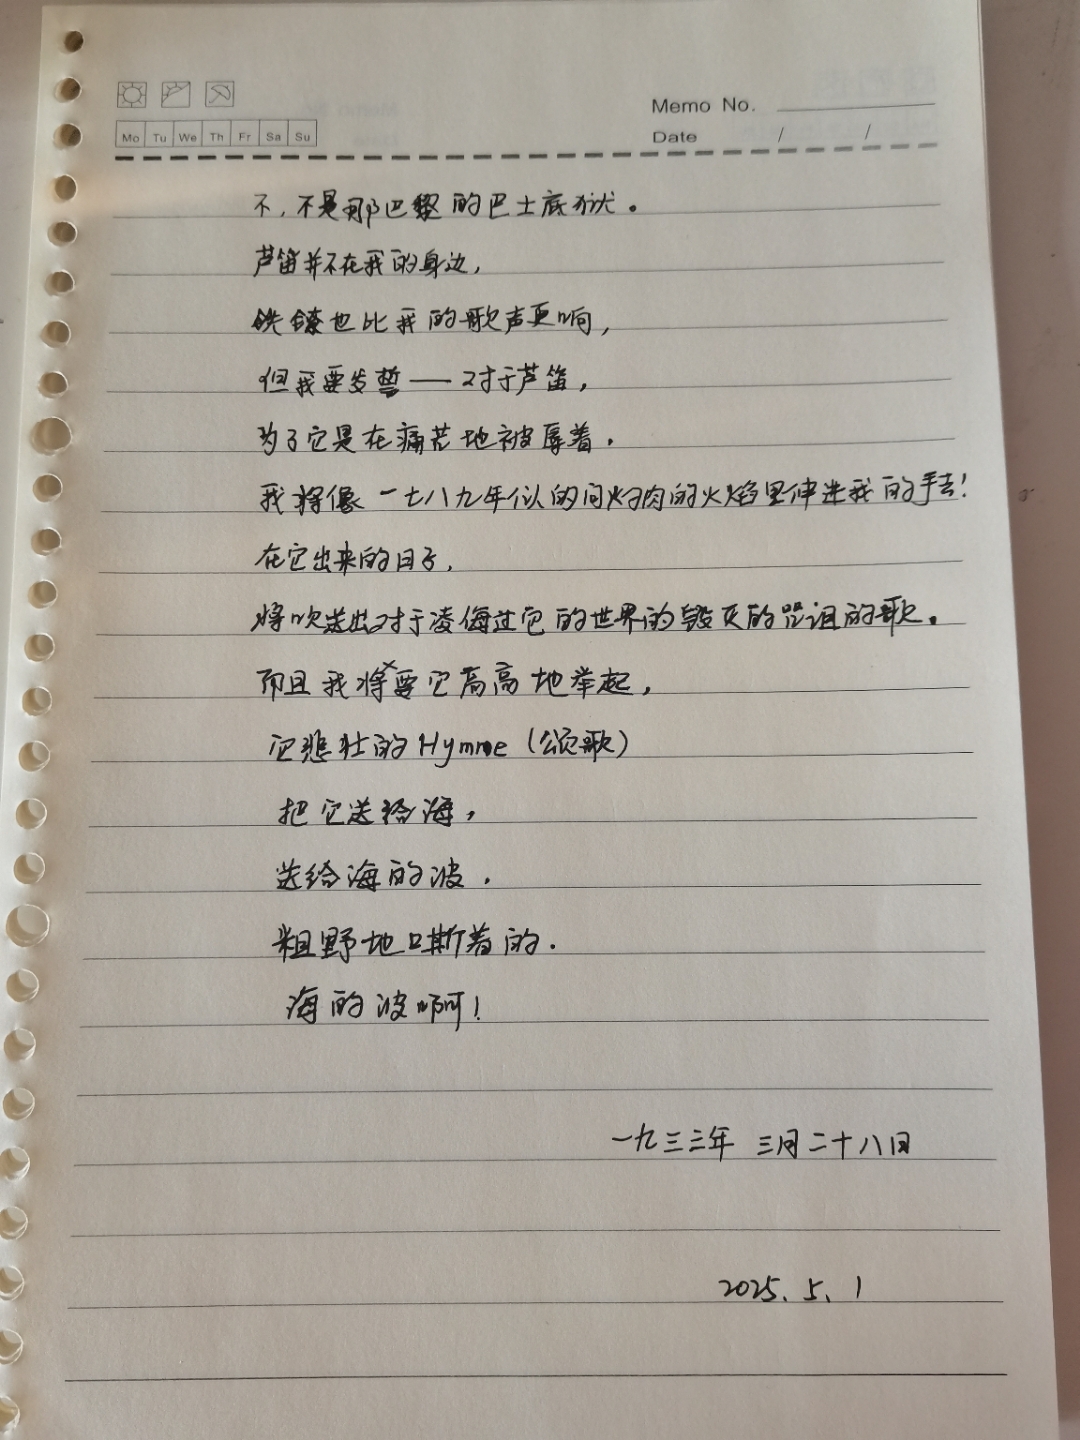 Memo No.
Mo Tu We Th Fr Sa Su
Date / /
不,不是那巴黎的巴士底狱。
芦笛并不在我的身边,
铁镣也比我的歌声更响,
但我要发誓——对于芦笛,
为了它是在痛苦地被辱着,
我将像一七八九年似的向灼肉的火焰里伸进我的手去!
在它出来的日子,
将吹送出对于凌侮过它的世界的毁灭的咒诅的歌。
而且我将要它高高地举起,
它悲壮的Hymne(颂歌)
把它送给海,
送给海的波,
粗野地嘶着的,
海的波啊!
一九三三年 三月二十八日
2025.5.1